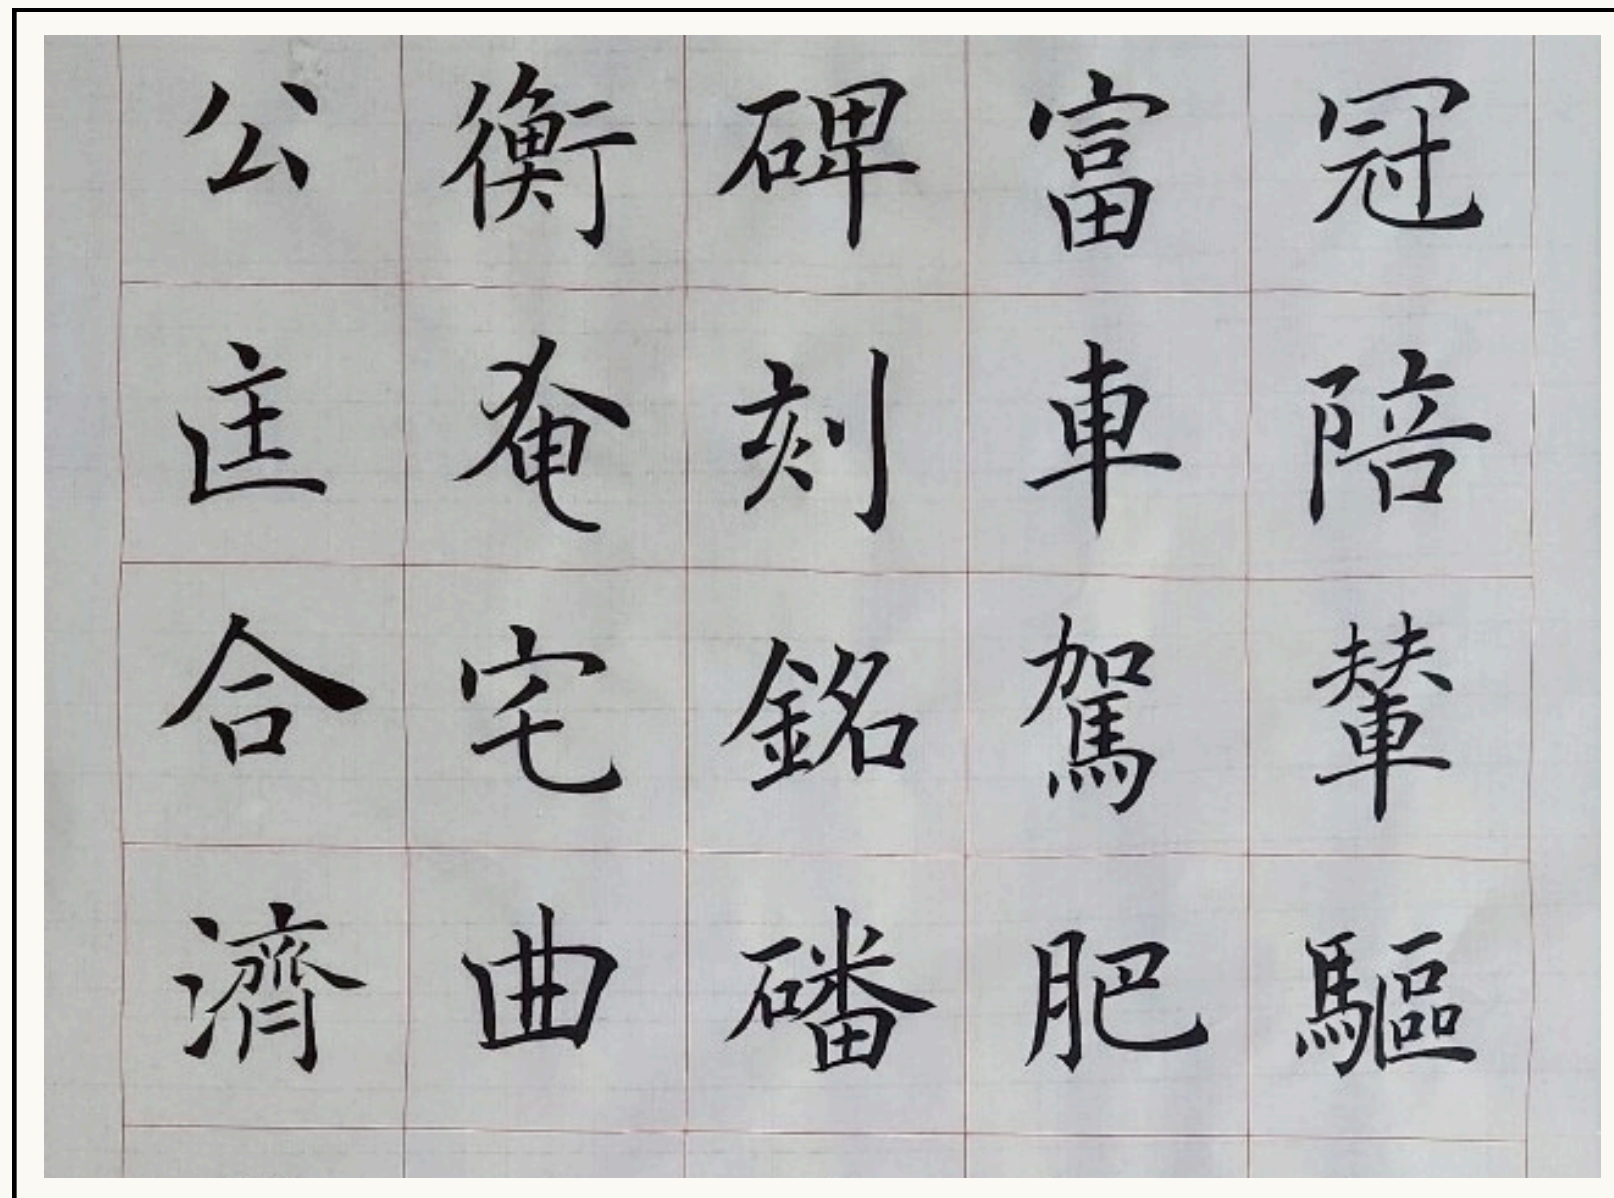 冠陪輦驅
富車駕肥
碑刻銘磻
衡奄宅曲
公匡合濟